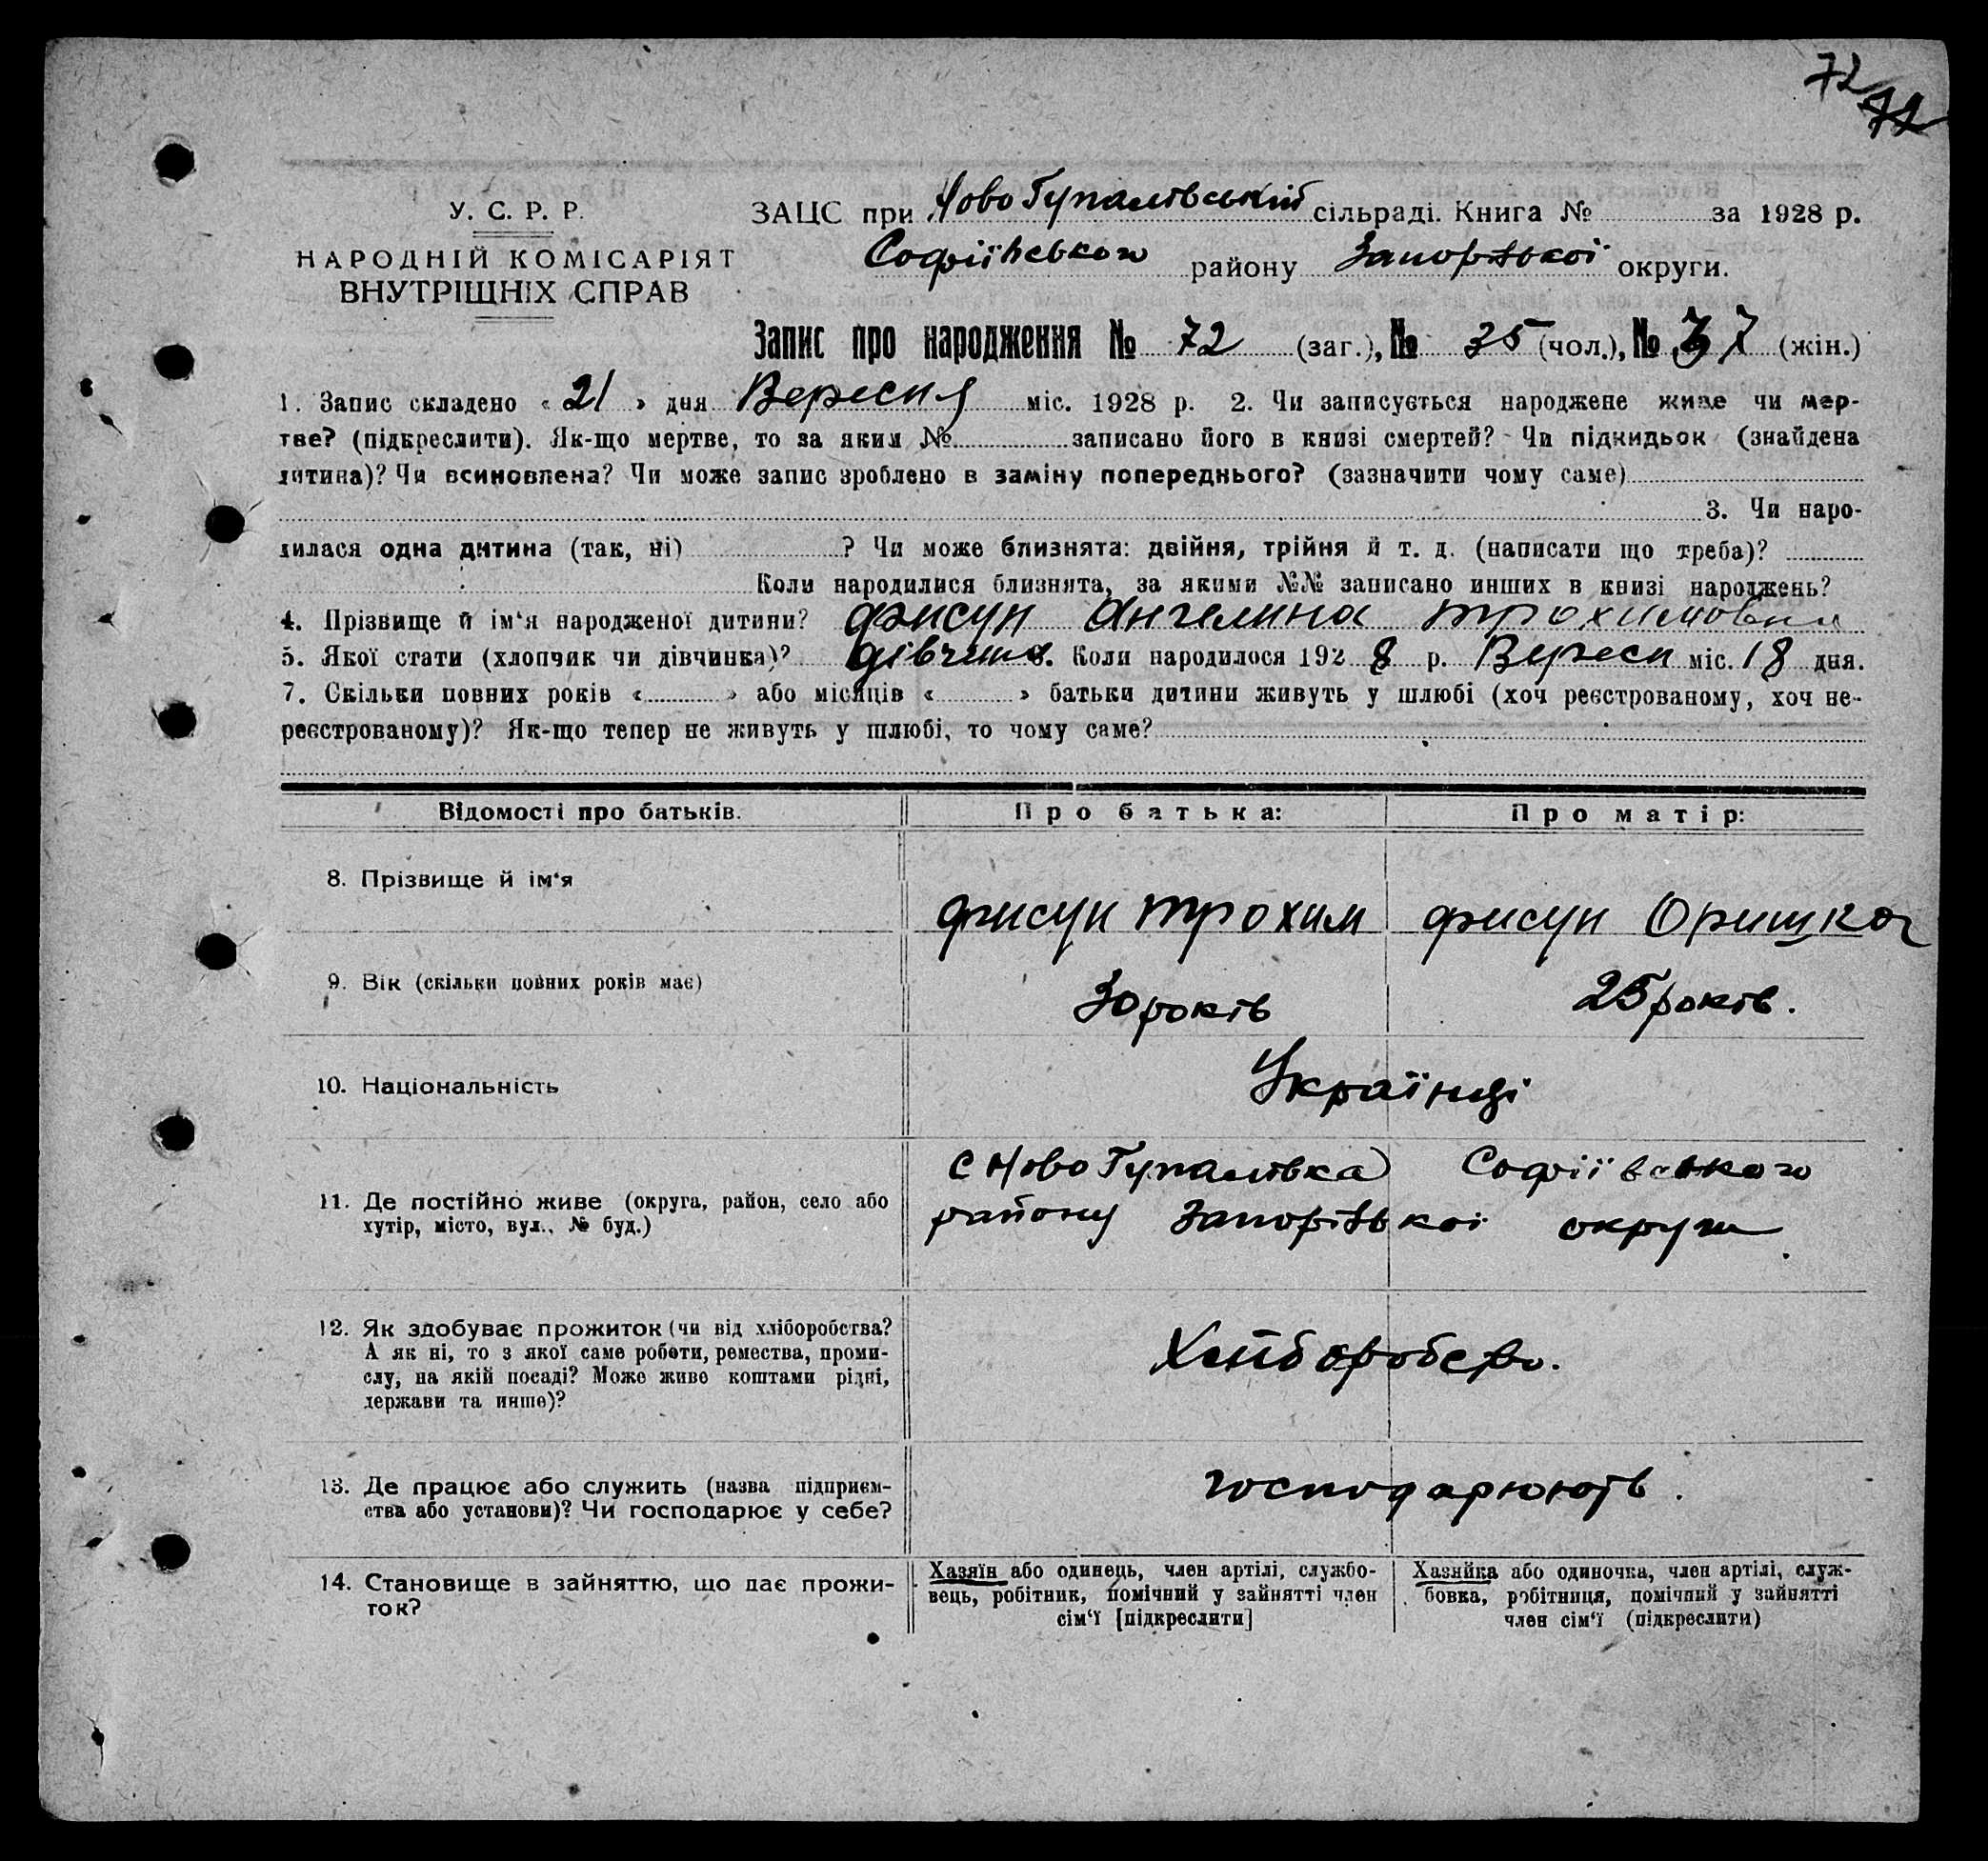 72
72
У. С. Р. Р.
НАРОДНІЙ КОМІСАРІЯТ
ВНУТРІШНІХ СПРАВ
ЗАЦС при Ново Гупалівській сільраді. Книга № за 1928 р.
Софіївського району Запорізької округи.
Запис про народження № 72 (заг.), № 35 (чол.), № 37 (жін.)
1. Запис складено « 21 » дня Вересня міс. 1928 р. 2. Чи записується народжене живе чи мер-
тве? (підкреслити). Як-що мертве, то за яким № записано його в книзі смертей? Чи підкидьок (знайдена
дитина)? Чи всиновлена? Чи може запис зроблено в заміну попереднього? (зазначити чому саме)
3. Чи наро-
дилася одна дитина (так, ні) ? Чи може близнята: двійня, трійня й т. д. (написати що треба)?
Коли народилися близнята, за якими №№ записано инших в книзі народжень?
4. Прізвище й ім‘я народженої дитини? Фисун Ангелина Трохимовна
5. Якої стати (хлопчик чи дівчинка)? дівчина. Коли народилося 1928 р. Вересн міс. 18 дня.
7. Скільки повних років « » або місяців « » батьки дитини живуть у шлюбі (хоч реєстрованому, хоч не-
реєстрованому)? Як-що тепер не живуть у шлюбі, то чому саме?
Відомості про батьків. Про батька: Про матір:
8. Прізвище й ім‘я
Фисун Трохим Фисун Оришка
9. Вік (скільки повних років має)
30 років 25 років.
10. Національність
Українці
11. Де постійно живе (округа, район, село або
хутір, місто, вул., № буд.)
с Ново Гупалівка Софіївського
району Запорізькоі округи
12. Як здобуває прожиток (чи від хліборобства?
А як ні, то з якої саме роботи, ремества, проми-
слу, на якій посаді? Може живе коштами рідні,
держави та инше)?
Хліборобство.
13. Де працює або служить (назва підприєм-
ства або установи)? Чи господарює у себе?
господарюють.
14. Становище в зайняттю, що дає прожи-
ток?
Хазяїн або одинець, член артілі, службо-
вець, робітник, помічний у зайнятті член
сім‘ї [підкреслити]
Хазяйка або одиночка, член артілі, служ-
бовка, робітниця, помічний у зайнятті
член сім‘ї (підкреслити)